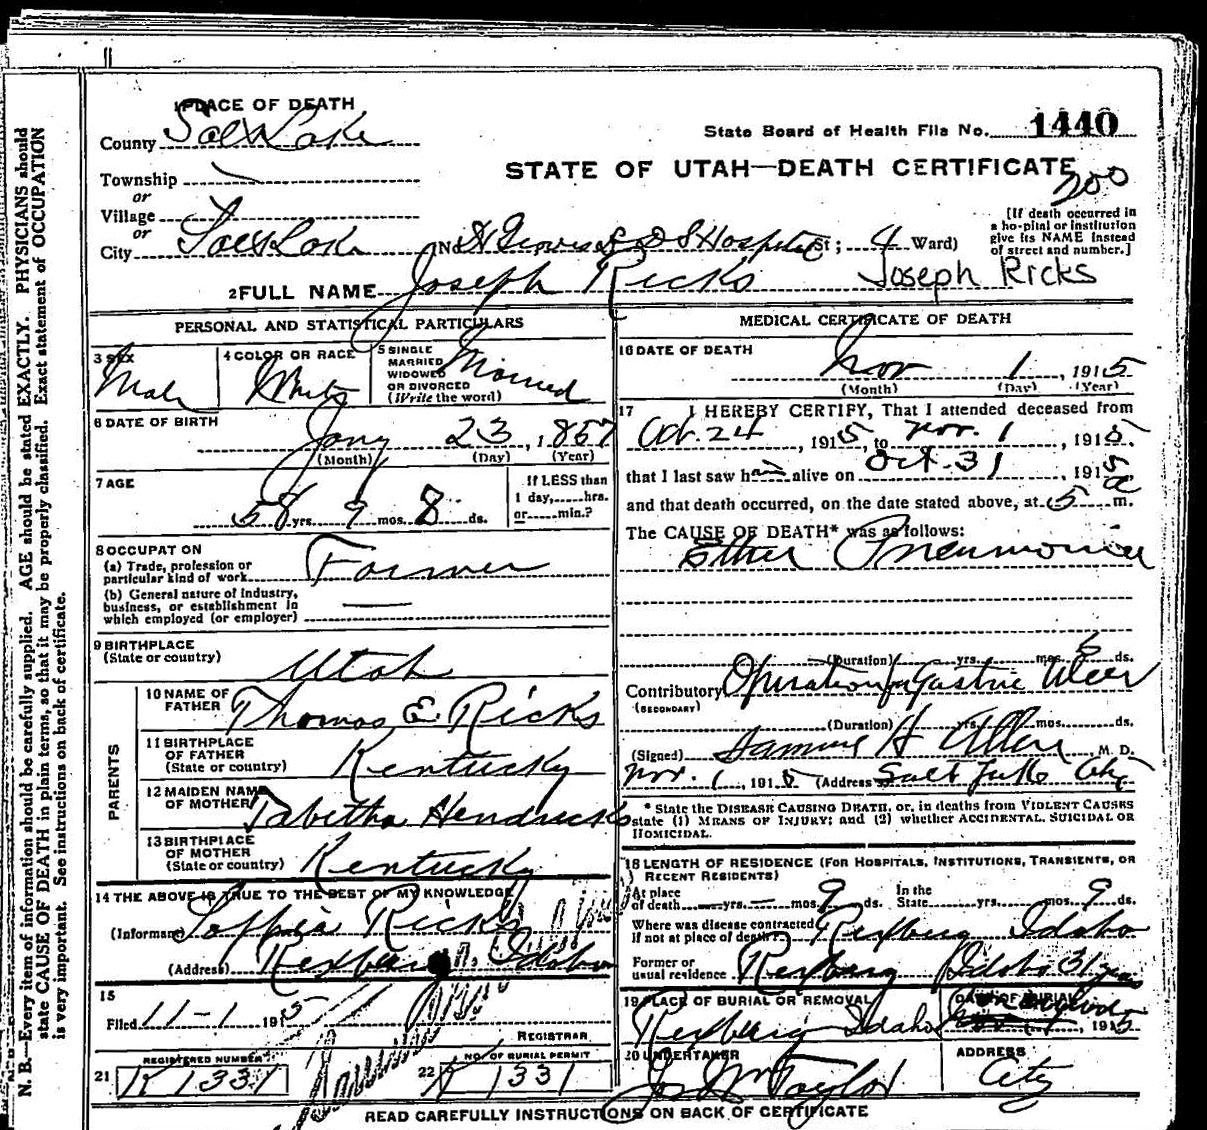 1 PLACE OF DEATH
County Salt Lake
State Board of Health File No. 1440
STATE OF UTAH—DEATH CERTIFICATE
200
Township
or
Village
or
City Salt Lake (No. L D S Hospital St; 4 Ward)
[If death occurred in a hospital or institution give its NAME instead of street and number.]
2 FULL NAME Joseph Ricks Joseph Ricks
PERSONAL AND STATISTICAL PARTICULARS
3 SEX Male
4 COLOR OR RACE White
5 SINGLE MARRIED WIDOWED OR DIVORCED (Write the word) Married
6 DATE OF BIRTH Jany 23, 1857
(Month) (Day) (Year)
7 AGE 58 yrs. 9 mos. 8 ds.
If LESS than 1 day,......hrs. or......min.?
8 OCCUPATION
(a) Trade, profession or particular kind of work Farmer
(b) General nature of industry, business, or establishment in which employed (or employer) —
9 BIRTHPLACE (State or country) Utah
PARENTS
10 NAME OF FATHER Thomas E Ricks
11 BIRTHPLACE OF FATHER (State or country) Kentucky
12 MAIDEN NAME OF MOTHER Tabitha Hendricks
13 BIRTHPLACE OF MOTHER (State or country) Kentucky
14 THE ABOVE IS TRUE TO THE BEST OF MY KNOWLEDGE
(Informant) Sophia Ricks
(Address) Rexburg, Idaho
15
Filed 11-1 1915
REGISTRAR
21 REGISTERED NUMBER K1331
22 NO. OF BURIAL PERMIT K1331
MEDICAL CERTIFICATE OF DEATH
16 DATE OF DEATH Nov 1, 1915
(Month) (Day) (Year)
17 I HEREBY CERTIFY, That I attended deceased from
Oct. 24, 1915, to Nov. 1, 1915.
that I last saw him alive on Oct. 31, 1915
and that death occurred, on the date stated above, at 5 a m.
The CAUSE OF DEATH* was as follows:
Ether Pneumonia
(Duration) yrs. mos. ds.
Contributory (SECONDARY) Operation for Gastric Ulcer
(Duration) yrs. mos. ds.
(Signed) Samuel H Allen, M. D.
Nov. 1, 1915 (Address) Salt Lake City
* State the DISEASE CAUSING DEATH, or, in deaths from VIOLENT CAUSES state (1) MEANS OF INJURY; and (2) whether ACCIDENTAL, SUICIDAL OR HOMICIDAL.
18 LENGTH OF RESIDENCE (FOR HOSPITALS, INSTITUTIONS, TRANSIENTS, OR RECENT RESIDENTS)
At place of death — yrs. — mos. 9 ds. In the State yrs. mos. 9 ds.
Where was disease contracted if not at place of death? Rexburg Idaho
Former or usual residence Rexburg Idaho 31 yrs
19 PLACE OF BURIAL OR REMOVAL Rexburg Idaho
DATE OF BURIAL , 1915
20 UNDERTAKER Jos Wm Taylor
ADDRESS City
READ CAREFULLY INSTRUCTIONS ON BACK OF CERTIFICATE
N. B.—Every item of information should be carefully supplied. AGE should be stated EXACTLY. PHYSICIANS should
state CAUSE OF DEATH in plain terms, so that it may be properly classified. Exact statement of OCCUPATION
is very important. See instructions on back of certificate.